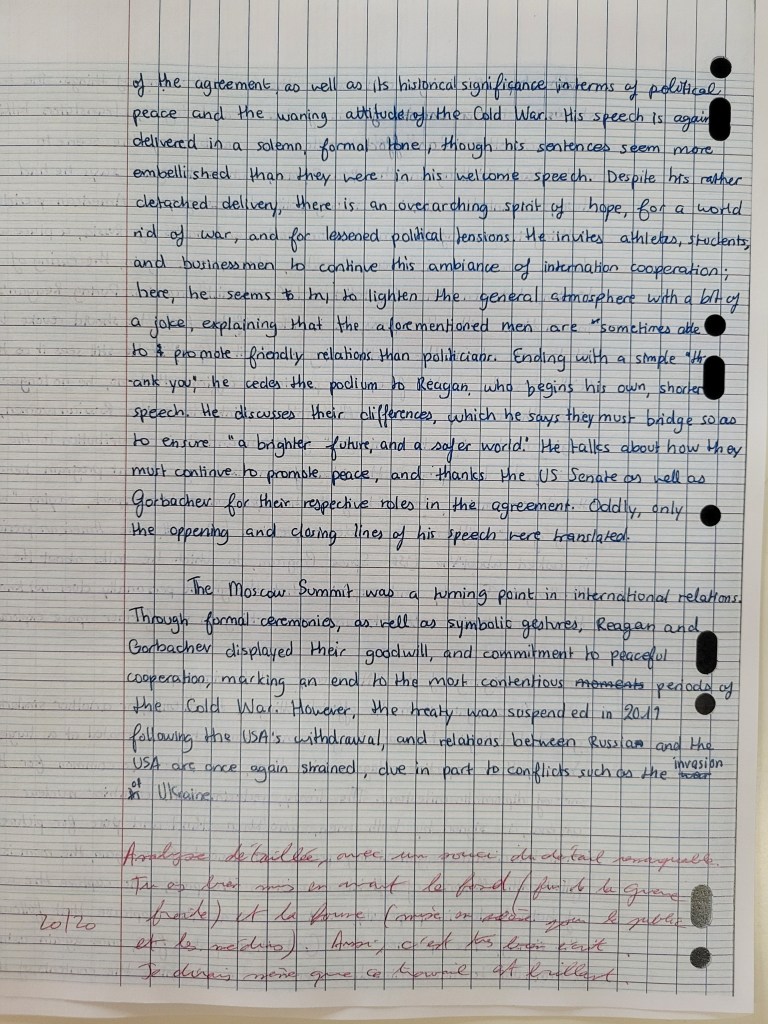 of the agreement, as well as its historical significance in terms of political
peace and the waning attitude of the Cold War. His speech is again
delivered in a solemn, formal tone, though his sentences seem more
embellished than they were in his welcome speech. Despite his rather
detached delivery, there is an overarching spirit of hope, for a world
rid of war, and for lessened political tensions. He invites athletes, students,
and businessmen to continue this ambiance of internation cooperation;
here, he seems to try to lighten the general atmosphere with a bit of
a joke, explaining that the aforementioned men are "sometimes able
to promote friendly relations than politicians. Ending with a simple "th-
-ank you", he cedes the podium to Reagan, who begins his own, shorter
speech. He discusses their differences, which he says they must bridge so as
to ensure "a brighter future, and a safer world." He talks about how they
must continue to promote peace, and thanks the US Senate as well as
Gorbachev for their respective roles in the agreement. Oddly, only
the oppening and closing lines of his speech were translated.
The Moscow Summit was a turning point in international relations.
Through formal ceremonies, as well as symbolic gestures, Reagan and
Gorbachev displayed their goodwill, and commitment to peaceful
cooperation, marking an end to the most contentious moments periods of
the Cold War. However, the treaty was suspended in 2019
following the USA's withdrawal, and relations between Russia and the
USA are once again strained, due in part to conflicts such as the invasion
of Ukraine.
Analyse détaillée, avec un souci du détail remarquable.
Tu as bien mis en avant le fond (fin de la guerre
froide) et la forme (mise en scène pour le public
20/20
et les médias). Aussi, c'est très bien écrit.
Je dirais même que ce travail est brillant.